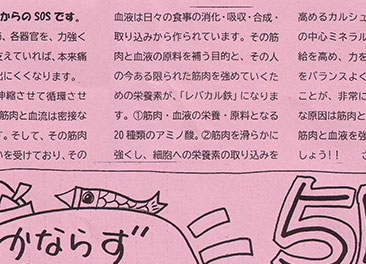 からの SOS です。
、各器官を、力強く
支えていれば、本来痛
出にくくなります。
伸縮させて循環させ
筋肉と血流は密接な
す。そして、その筋肉
いを受けており、その
血液は日々の食事の消化・吸収・合成・
取り込みから作られています。その筋
肉と血液の原料を補う目的と、その人
の今ある限られた筋肉を強めていくた
めの栄養素が、「レバカル鉄」になりま
す。①筋肉・血液の栄養・原料となる
20 種類のアミノ酸。②筋肉を滑らかに
強くし、細胞への栄養素の取り込みを
高めるカルシュ
の中心ミネラル
給を高め、力を
をバランスよく
ことが、非常に
な原因は筋肉と
筋肉と血液を強
しょう!! さ
かならず
5